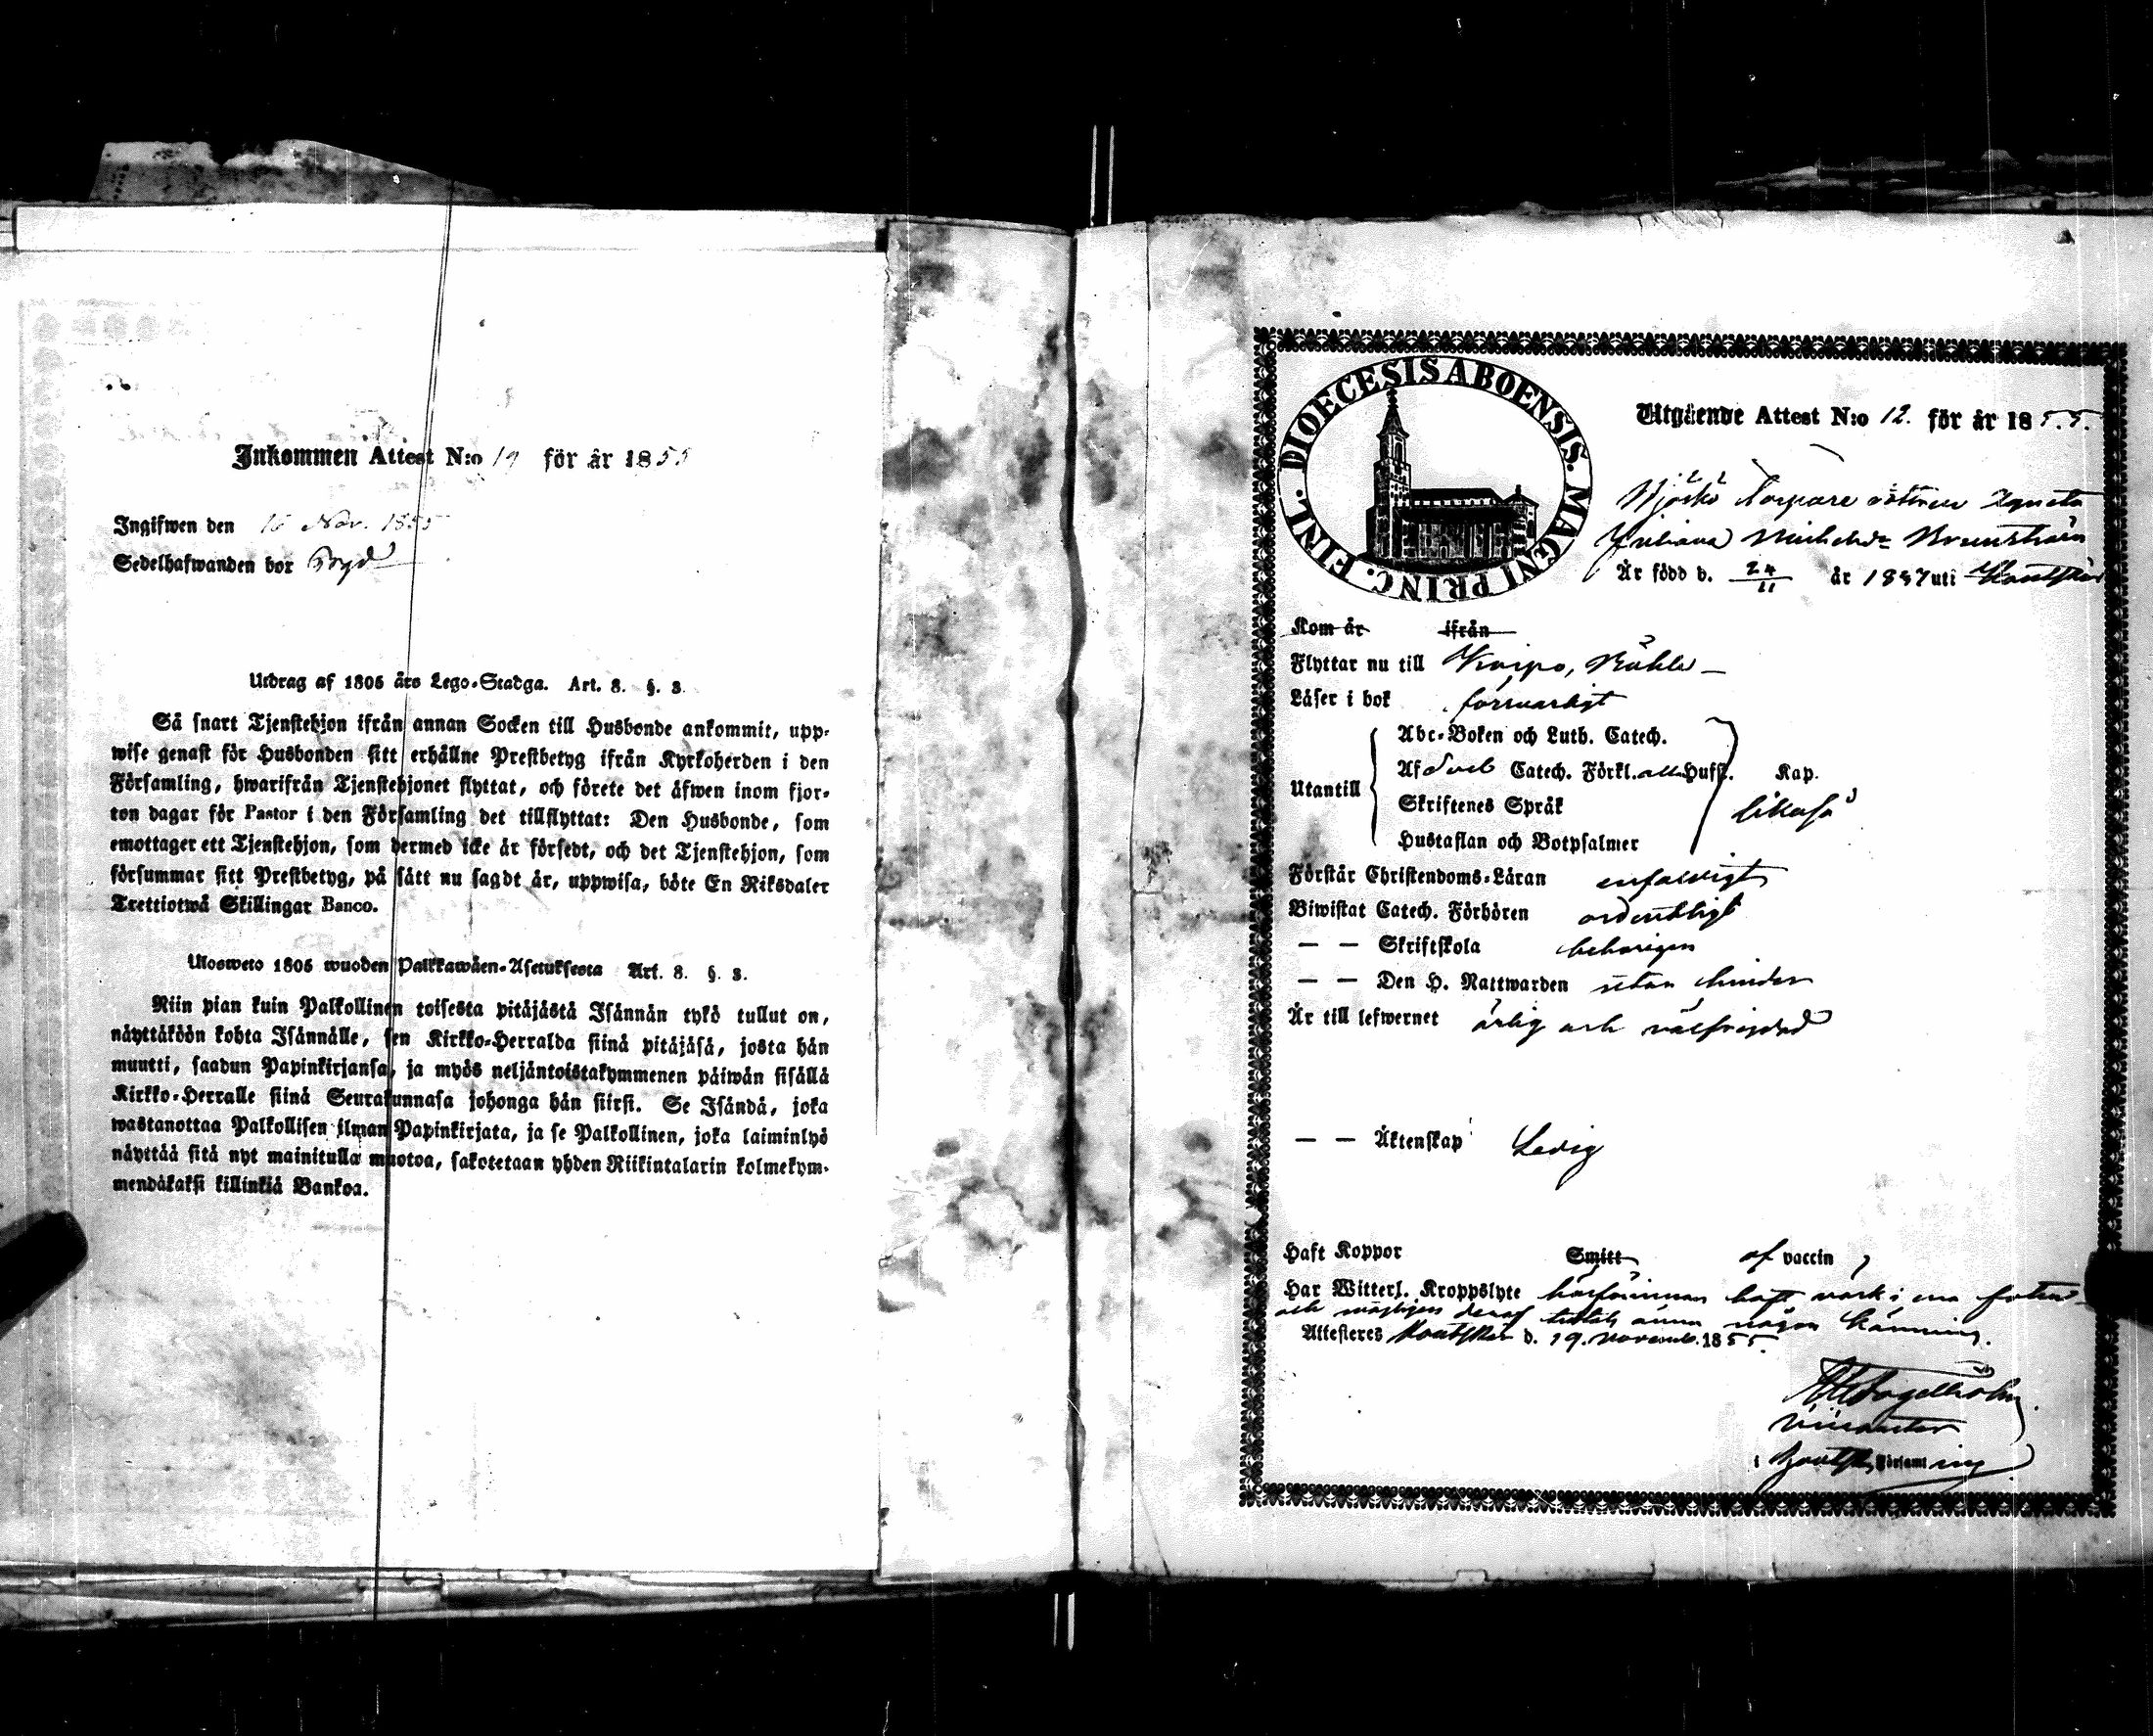 Inkommen Attest N:o 19 för år 1855
Ingifwen den 16 Nov. 1855
Sedelhafwanden bor
Utdrag af 1805 års Lego-Stadga. Art. 8. §. 3.
Så snart Tjenstehjon ifrån annan Socken till Husbonde ankommit, upp-
wise genast för Husbonden sitt erhållne Prestbetyg ifrån Kyrkoherden i den
Församling, hwarifrån Tjenstehjonet flyttat, och förete det åfwen inom fjor-
ton dagar för Pastor i den Församling det tillflyttat: Den Husbonde, som
emottager ett Tjenstehjon, som dermed icke är försedt, och det Tjenstehjon, som
försummar sitt Prestbetyg, på sätt nu sagdt är, uppwisa, böte En Riksdaler
Trettiotwå Skillingar Banco.
Ulosweto 1805 wuoden Palkkawåen-Asetuksesta Art. 8. §. 3.
Niin pian kuin Palkollinen toisesta pitäjästä Isännän tykö tullut on,
näyttäköön kohta Isännälle, sen Kirkko-Herralda siinä pitäjäsä, josta hän
muutti, saadun Papinkirjansa, ja myös neljäntoistakymmenen päiwän sisällä
Kirkko-Herralle siinä Seurakunnasa johonga hän siirsi. Se Isändä, joka
wastanottaa Palkollisen ilman Papinkirjata, ja se Palkollinen, joka laiminlyö
näyttää sitä nyt mainitulla muotoa, sakotetaan yhden Riikintalarin kolmekym-
mendäkaksi killinkiä Bankoa.
DIOECESIS ABOENSIS. MAGNI PRINC. FINL.
Utgående Attest N:o 12. för år 1855.
Torpare dottren Agneta
Juliana Michelsdr Brunström
Är född d. 24/11 år 1837 uti Houtskär
Kom år ifrån
Flyttar nu till Korpo, Rähls
Läser i bok försvarligt
Utantill
Abc-Boken och Luth. Catech.
Af Sveb Catech. Förkl. alla Hufst. Kap.
Skriftenes Språk likaså
Hustaflan och Botpsalmer
Förstår Christendoms-Läran enfaldigt
Biwistat Catech. Förhören ordentligt
— — Skriftskola behörigen
— — Den H. Nattwarden utan hinder
Är till lefwernet ärlig och välfrejdad
— — Äktenskap Ledig
Haft Koppor Smitt af vaccin
Har Witterl. Kroppslyte härförinnan haft värk i ena foten
och möjligen deraf ännu någon känning.
Attesteres Houtskär d. 19. Novemb. 1855.
i Houtsk. Församling